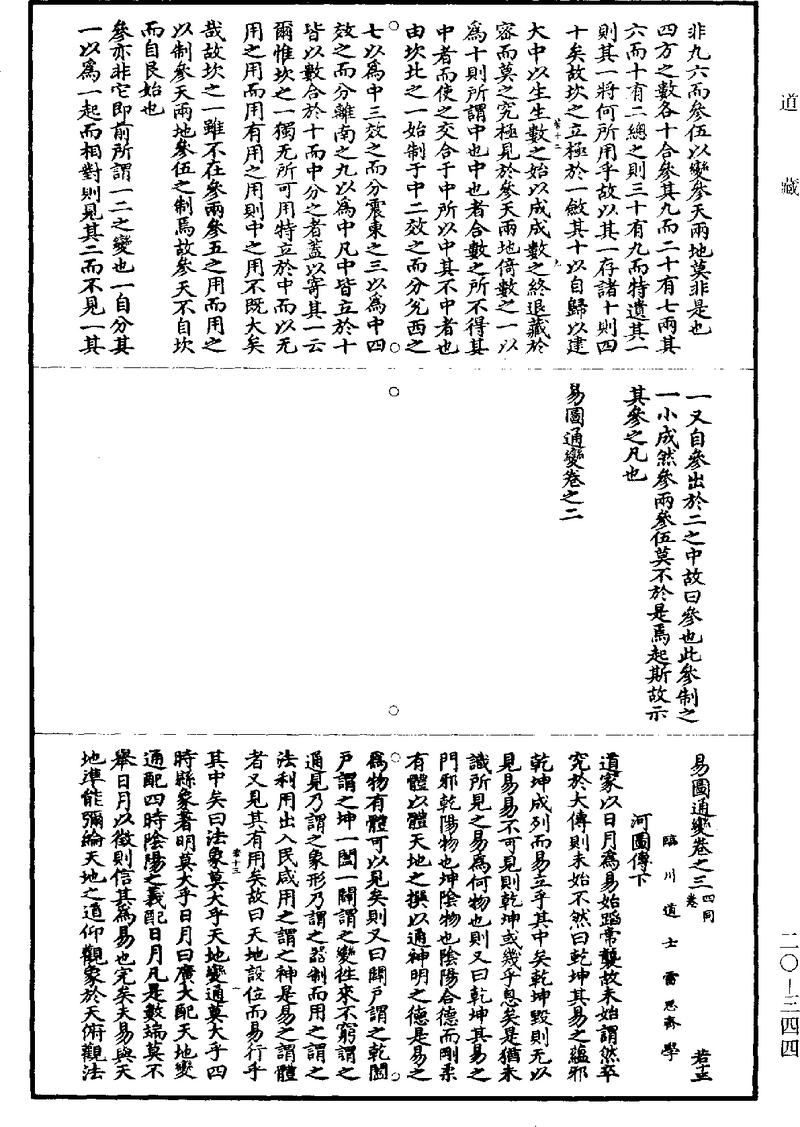 道藏
二〇-三四四
非九六而參伍以變參天兩地莫非是也
四方之數各十合參其九而二十有七兩其
六而十有二總之則三十有九而特遺其一
則其一將何所用乎故以其一存諸十則四
十矣故坎之立極於一斂其十以自歸以建
大中以生生數之始以成成數之終退藏於
密而莫之究極見於參天兩地倚數之一以
為十則所謂中也中也者合數之所不得其
中者而使之交合于中所以中其不中者也
由坎北之一始制于中二效之而分兌西之
七以為中三效之而分震東之三以為中四
效之而分離南之九以為中凡中皆立於十
皆以數合於十而中分之者蓋以寄其一云
爾惟坎之一獨无所可用特立於中而以无
用之用而用有用之用則中之用不既大矣
哉故坎之一雖不在參兩參五之用而用之
以制參天兩地參伍之制焉故參天不自坎
而自艮始也
參亦非它即前所謂一二之變也一自分其
一以為一起而相對則見其二而不見一其
一又自參出於二之中故曰參也此參制之
一小成然參兩參伍莫不於是焉起斯故示
其參之凡也
易圖通變卷之二
易圖通變卷之三 四同卷 若十三
臨川道士雷思齊學
河圖傳下
道家以日月為易始蹈常襲故未始謂然卒
究於大傳則未始不然曰乾坤其易之縕邪
乾坤成列而易立乎其中矣乾坤毀則无以
見易易不可見則乾坤或幾乎息矣是猶未
識所見之易為何物也則又曰乾坤其易之
門邪乾陽物也坤陰物也陰陽合德而剛柔
有體以體天地之撰以通神明之德是易之
為物有體可以見矣則又曰闢戶謂之乾闔
戶謂之坤一闔一闢謂之變往來不窮謂之
通見乃謂之象形乃謂之器制而用之謂之
法利用出入民咸用之謂之神是易之謂體
者又見其有用矣故曰天地設位而易行乎
其中矣曰法象莫大乎天地變通莫大乎四
時縣象著明莫大乎日月曰廣大配天地變
通配四時陰陽之義配日月凡是數端莫不
舉日月以徵則信其為易也完矣夫易與天
地準能彌綸天地之道仰觀象於天俯觀法